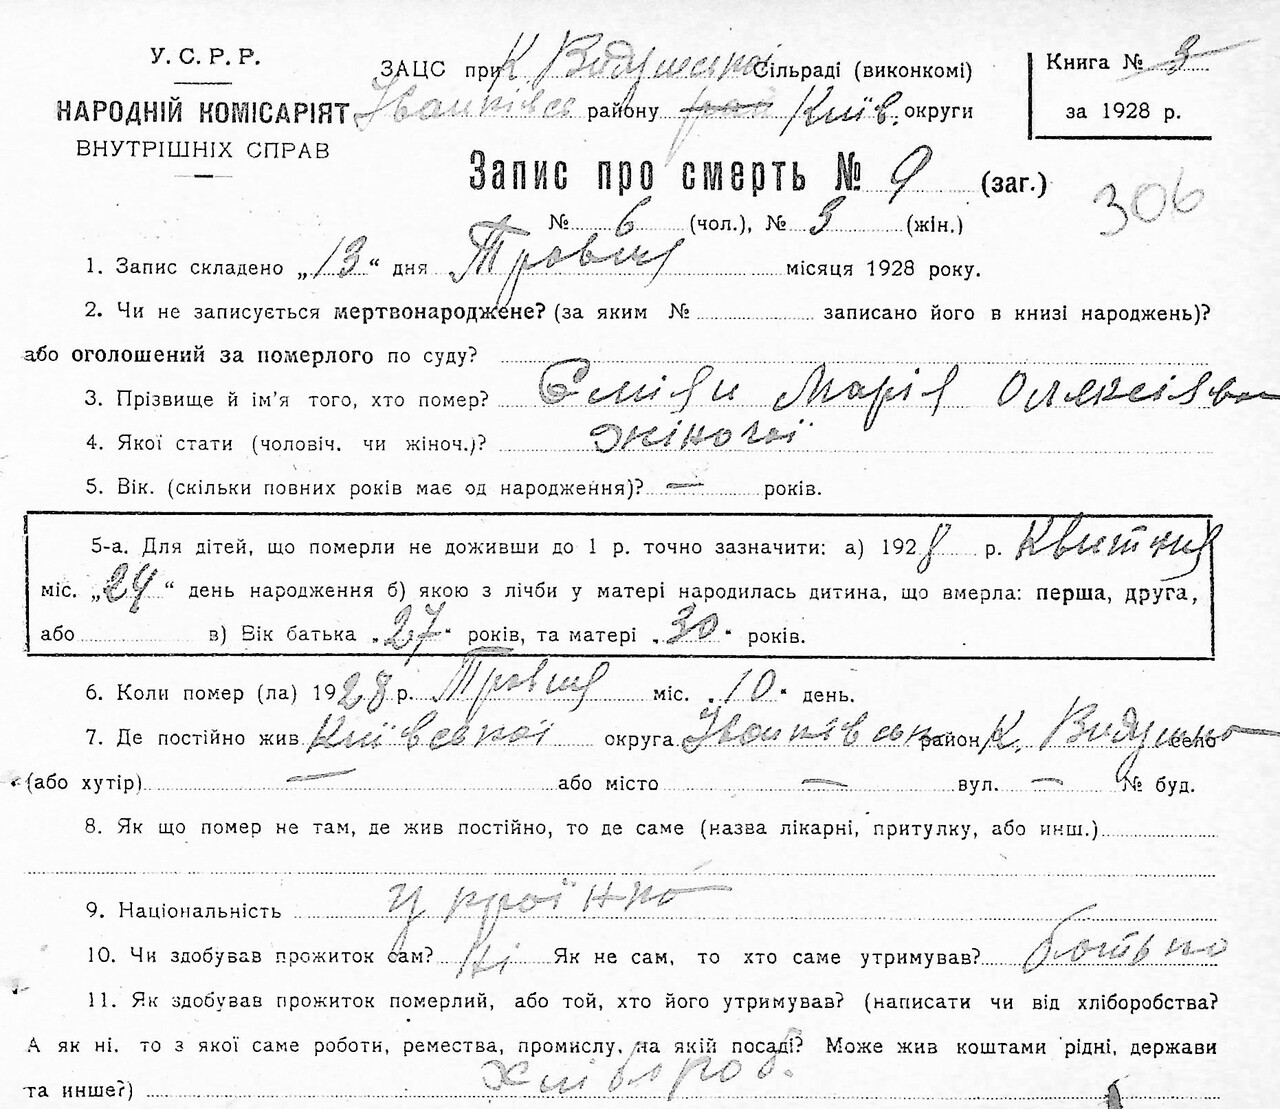 У. С. Р. Р.
НАРОДНІЙ КОМІСАРІЯТ
ВНУТРІШНІХ СПРАВ
ЗАЦС при К Видумської Сільраді (виконкомі)
Іванківсь району Київ. округи
Книга № 3
за 1928 р.
Запис про смерть № 9 (заг.)
306
№ 6 (чол.), № 3 (жін.)
1. Запис складено „13“ дня Травня місяця 1928 року.
2. Чи не записується мертвонароджене? (за яким № записано його в книзі народжень)?
або оголошений за померлого по суду?
3. Прізвище й ім'я того, хто помер? Марія Олексіївна
4. Якої стати (чоловіч. чи жіноч.)? жіночої
5. Вік. (скільки повних років має од народження)? — років.
5-а. Для дітей, що померли не доживши до 1 р. точно зазначити: а) 1928 р. Квітня
міс. „24“ день народження б) якою з лічби у матері народилась дитина, що вмерла: перша, друга,
або в) Вік батька „27“ років, та матері „30“ років.
6. Коли помер (ла) 1928 р. Травня міс. „10“ день.
7. Де постійно жив Київської округа Іванківськ район К. Видумка село
(або хутір) — або місто — вул. — № буд.
8. Як що помер не там, де жив постійно, то де саме (назва лікарні, притулку, або инш.)
9. Національність українка
10. Чи здобував прожиток сам? Ні Як не сам, то хто саме утримував? батько
11. Як здобував прожиток померлий, або той, хто його утримував? (написати чи від хліборобства?
А як ні. то з якої саме роботи, ремества, промислу, на якій посаді? Може жив коштами рідні, держави
та инше?) хлібороб.